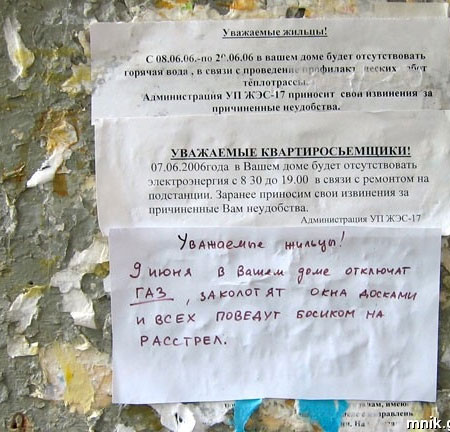 Уважаемые жильцы!
С 08.06.06.-по 2 .06.06 в вашем доме будет отсутствовать
горячая вода , в связи с проведение профилакт ческих абот
теплотрассы.
Администрация УП ЖЭС-17 приносит свои извинения за
причиненные неудобства.
УВАЖАЕМЫЕ КВАРТИРОСЬЕМЩИКИ!
07.06.2006года в Вашем доме будет отсутствовать
электроэнергия с 8 30 до 19.00 в связи с ремонтом на
подстанции. Заранее приносим свои извинения за
причиненные Вам неудобства.
Администрация УП ЖЭС-17
Уважаемые жильцы!
9 июня в Вашем доме отключат
ГАЗ, заколотят окна досками
и всех поведут босиком на
расстрел.
mnik.